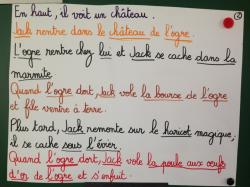 En haut, il voit un château.
Jack rentre dans le château de l'ogre.
L'ogre rentre chez lui et Jack se cache dans la
marmite.
Quand l'ogre dort, Jack vole la bourse de l'ogre
et file ventre à terre.
Plus tard, Jack remonte sur le haricot magique,
il se cache sous l'évier.
Quand l'ogre dort, Jack vole la poule aux œufs
d'or de l'ogre et s'enfuit.